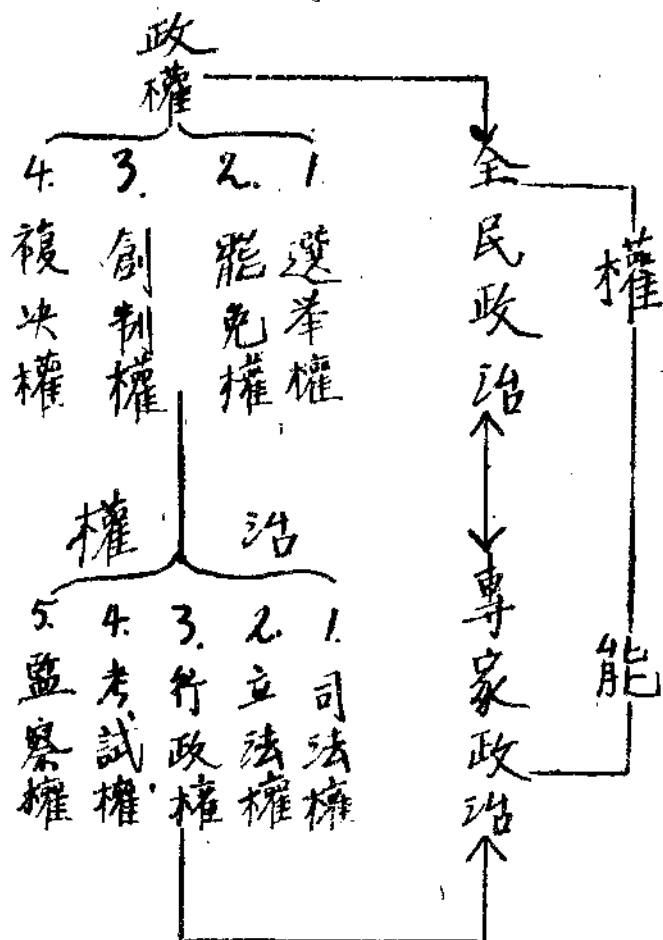 政權
1. 選举權
2. 罷免權
3. 創制權
4. 複决權
治權
1. 司法權
2. 立法權
3. 行政權
4. 考試權
5. 監察權
全民政治
專家政治
權
能